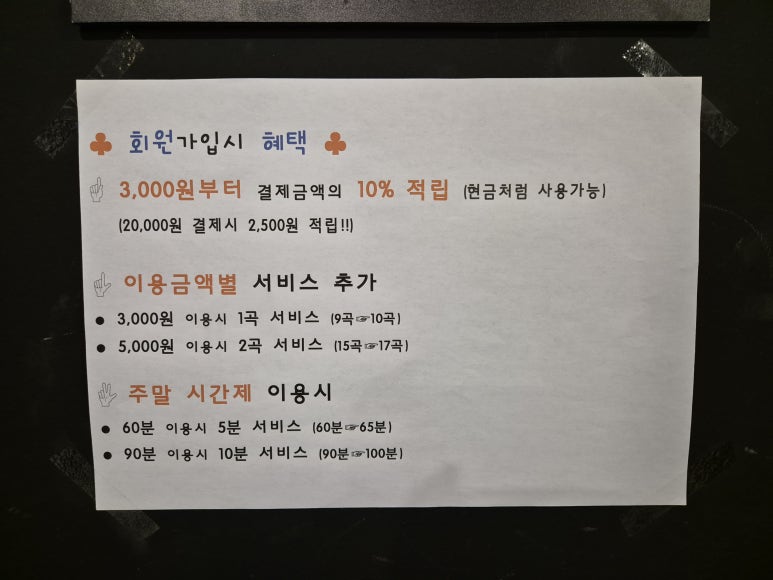 ♣ 회원가입시 혜택 ♣
☝ 3,000원부터 결제금액의 10% 적립 (현금처럼 사용가능)
(20,000원 결제시 2,500원 적립!!)
이용금액별 서비스 추가
● 3,000원 이용시 1곡 서비스 (9곡☞10곡)
● 5,000원 이용시 2곡 서비스 (15곡☞17곡)
주말 시간제 이용시
● 60분 이용시 5분 서비스 (60분☞65분)
● 90분 이용시 10분 서비스 (90분☞100분)